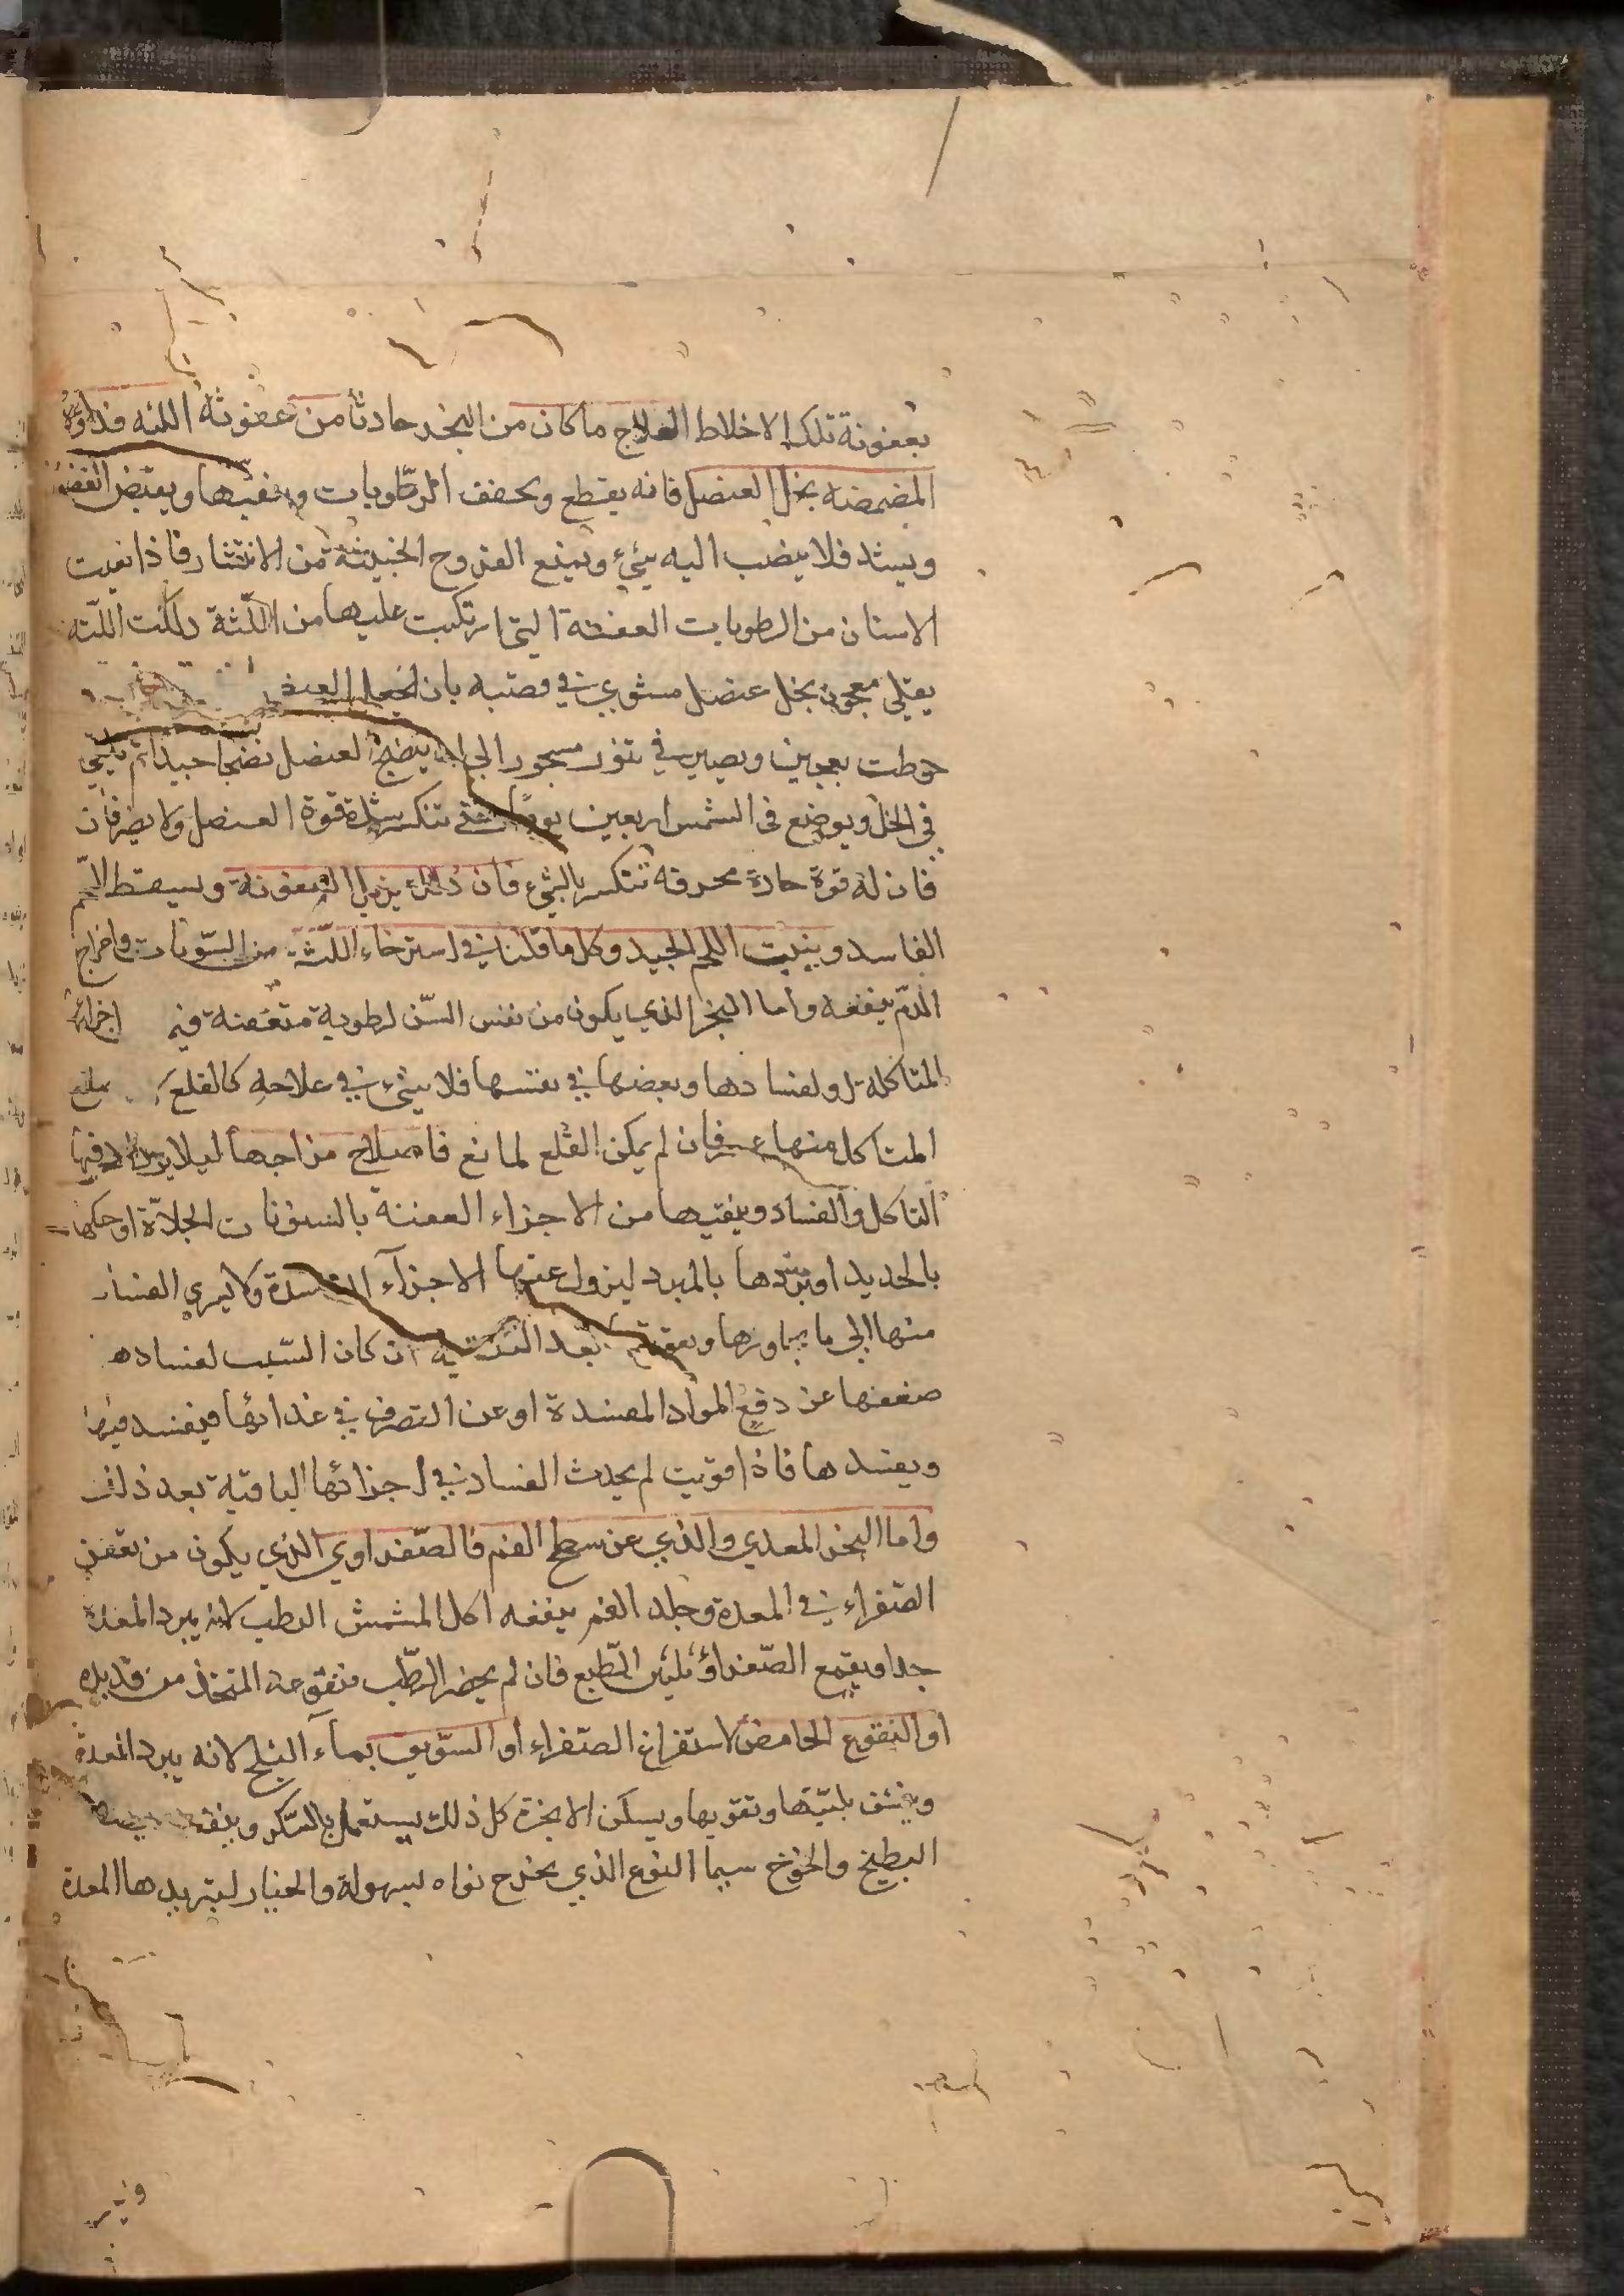 بعفونة تلك الاخلاط العلاج ما كان من البخر حادثا من عفونة اللثه فدواؤه
المضمضه بخل العنصل فانه يقطع ويجفف الرطوبات وينقيها ويقبض العضو
ويشد فلا ينصب اليه شيء ويمنع القروح الخبيثة من الانتشار فاذا نقيت
الاسنان من الرطوبات العفنة التي ارتكبت عليها من اللثة دلكت اللثه
بقلي معجون بخل عنصل مشوي في قصبه بان يجعل العنصل
حوطت بعجين ويصير في تنور مسجور الى ان ينضج العنصل نضجا جيدا ثم يلقى
في الخل ويوضع في الشمس اربعين يوما حتى تنكسر شدة قوة العنصل ولا يضر فان
فان له قوة حادة محرقه تنكسر بالشيء فان ذلك يزيل العفونة ويسقط اللحم
الفاسد وينبت اللحم الجيد وكل ما قلنا في استرخاء اللثة من السنونات واخراج
الدم ينفعه واما البخر الذي يكون من نفس السن لرطوبة متعفنة في اجزائه
المتاكلة او لفسادها وبعضها في نفسها فلا شيء في علاجه كالقلع
المتاكل منها فان لم يمكن القلع لمانع فاصلاح مزاجها ليلا يزداد فيها
التاكل والفساد وينقيها من الاجزاء العفنة بالسنونات الجلاءة او حكها
بالحديد او بردها بالمبرد ليزول عنها الاجزآء الفاسدة ولا يسري الفساد
منها الى ما يجاورها وتقويتها بعد التنقية ان كان السبب لفسادها
ضعفها عن دفع المواد المفسدة او عن التصرف في غذائها فيفسد فيها
ويفسدها فاذا قويت لم يحدث الفساد في اجزائها الباقية بعد ذلك
واما البخر المعدي والذي عن سطح الفم فالصفراوي الذي يكون من تعفن
الصفراء في المعدة وجلد الفم ينفعه اكل المشمش الرطب لانه يبرد المعدة
جدا ويقمع الصفراء ويلين الطبع فان لم يحضر الرطب فنقوعه المتخذ من قديده
او النقوع الحامض لاستفراغ الصفراء او السويق بمآء الثلج لانه يبرد المعدة
وينشف بلتها وتقويها ويسكن الابخرة كل ذلك يستعمل بالسكر وينفعه
البطيخ والخوخ سيما النوع الذي يخرج نواه بسهولة والخيار لتبريدها المعدة